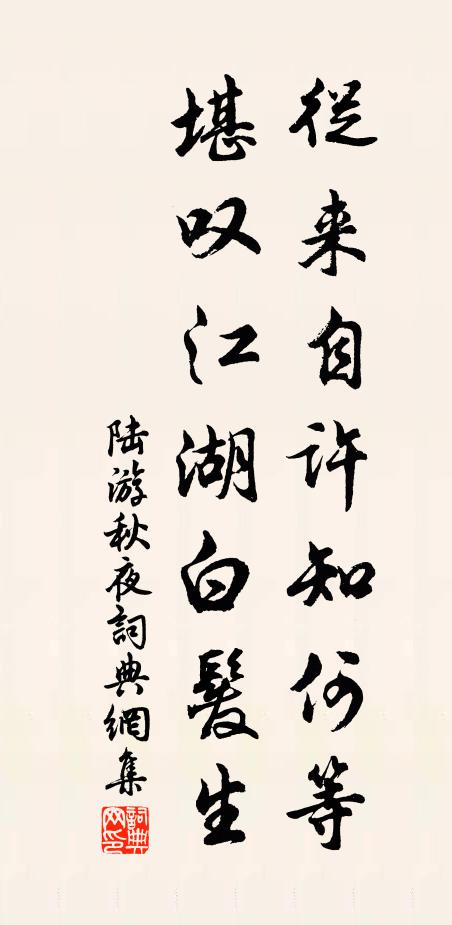 從来自許知何等
堪叹江湖白髮生
陆游秋夜詞典網集
詞典網印